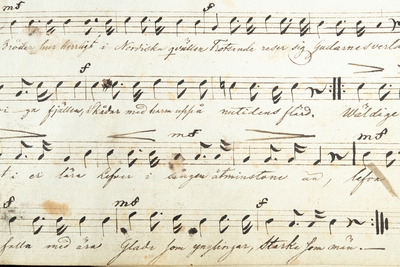 mf f
Bröder, hur herrligt i Nordiska qvällen Trotsande reser sig Gudarnes
f
fjällen, skådar med harm uppå nutidens flärd. Wäldige
mf mf
i er lära lefver i sången åtminstone än, lefva
mf f
falla med ära Glade som ynglingar, Starke som män.